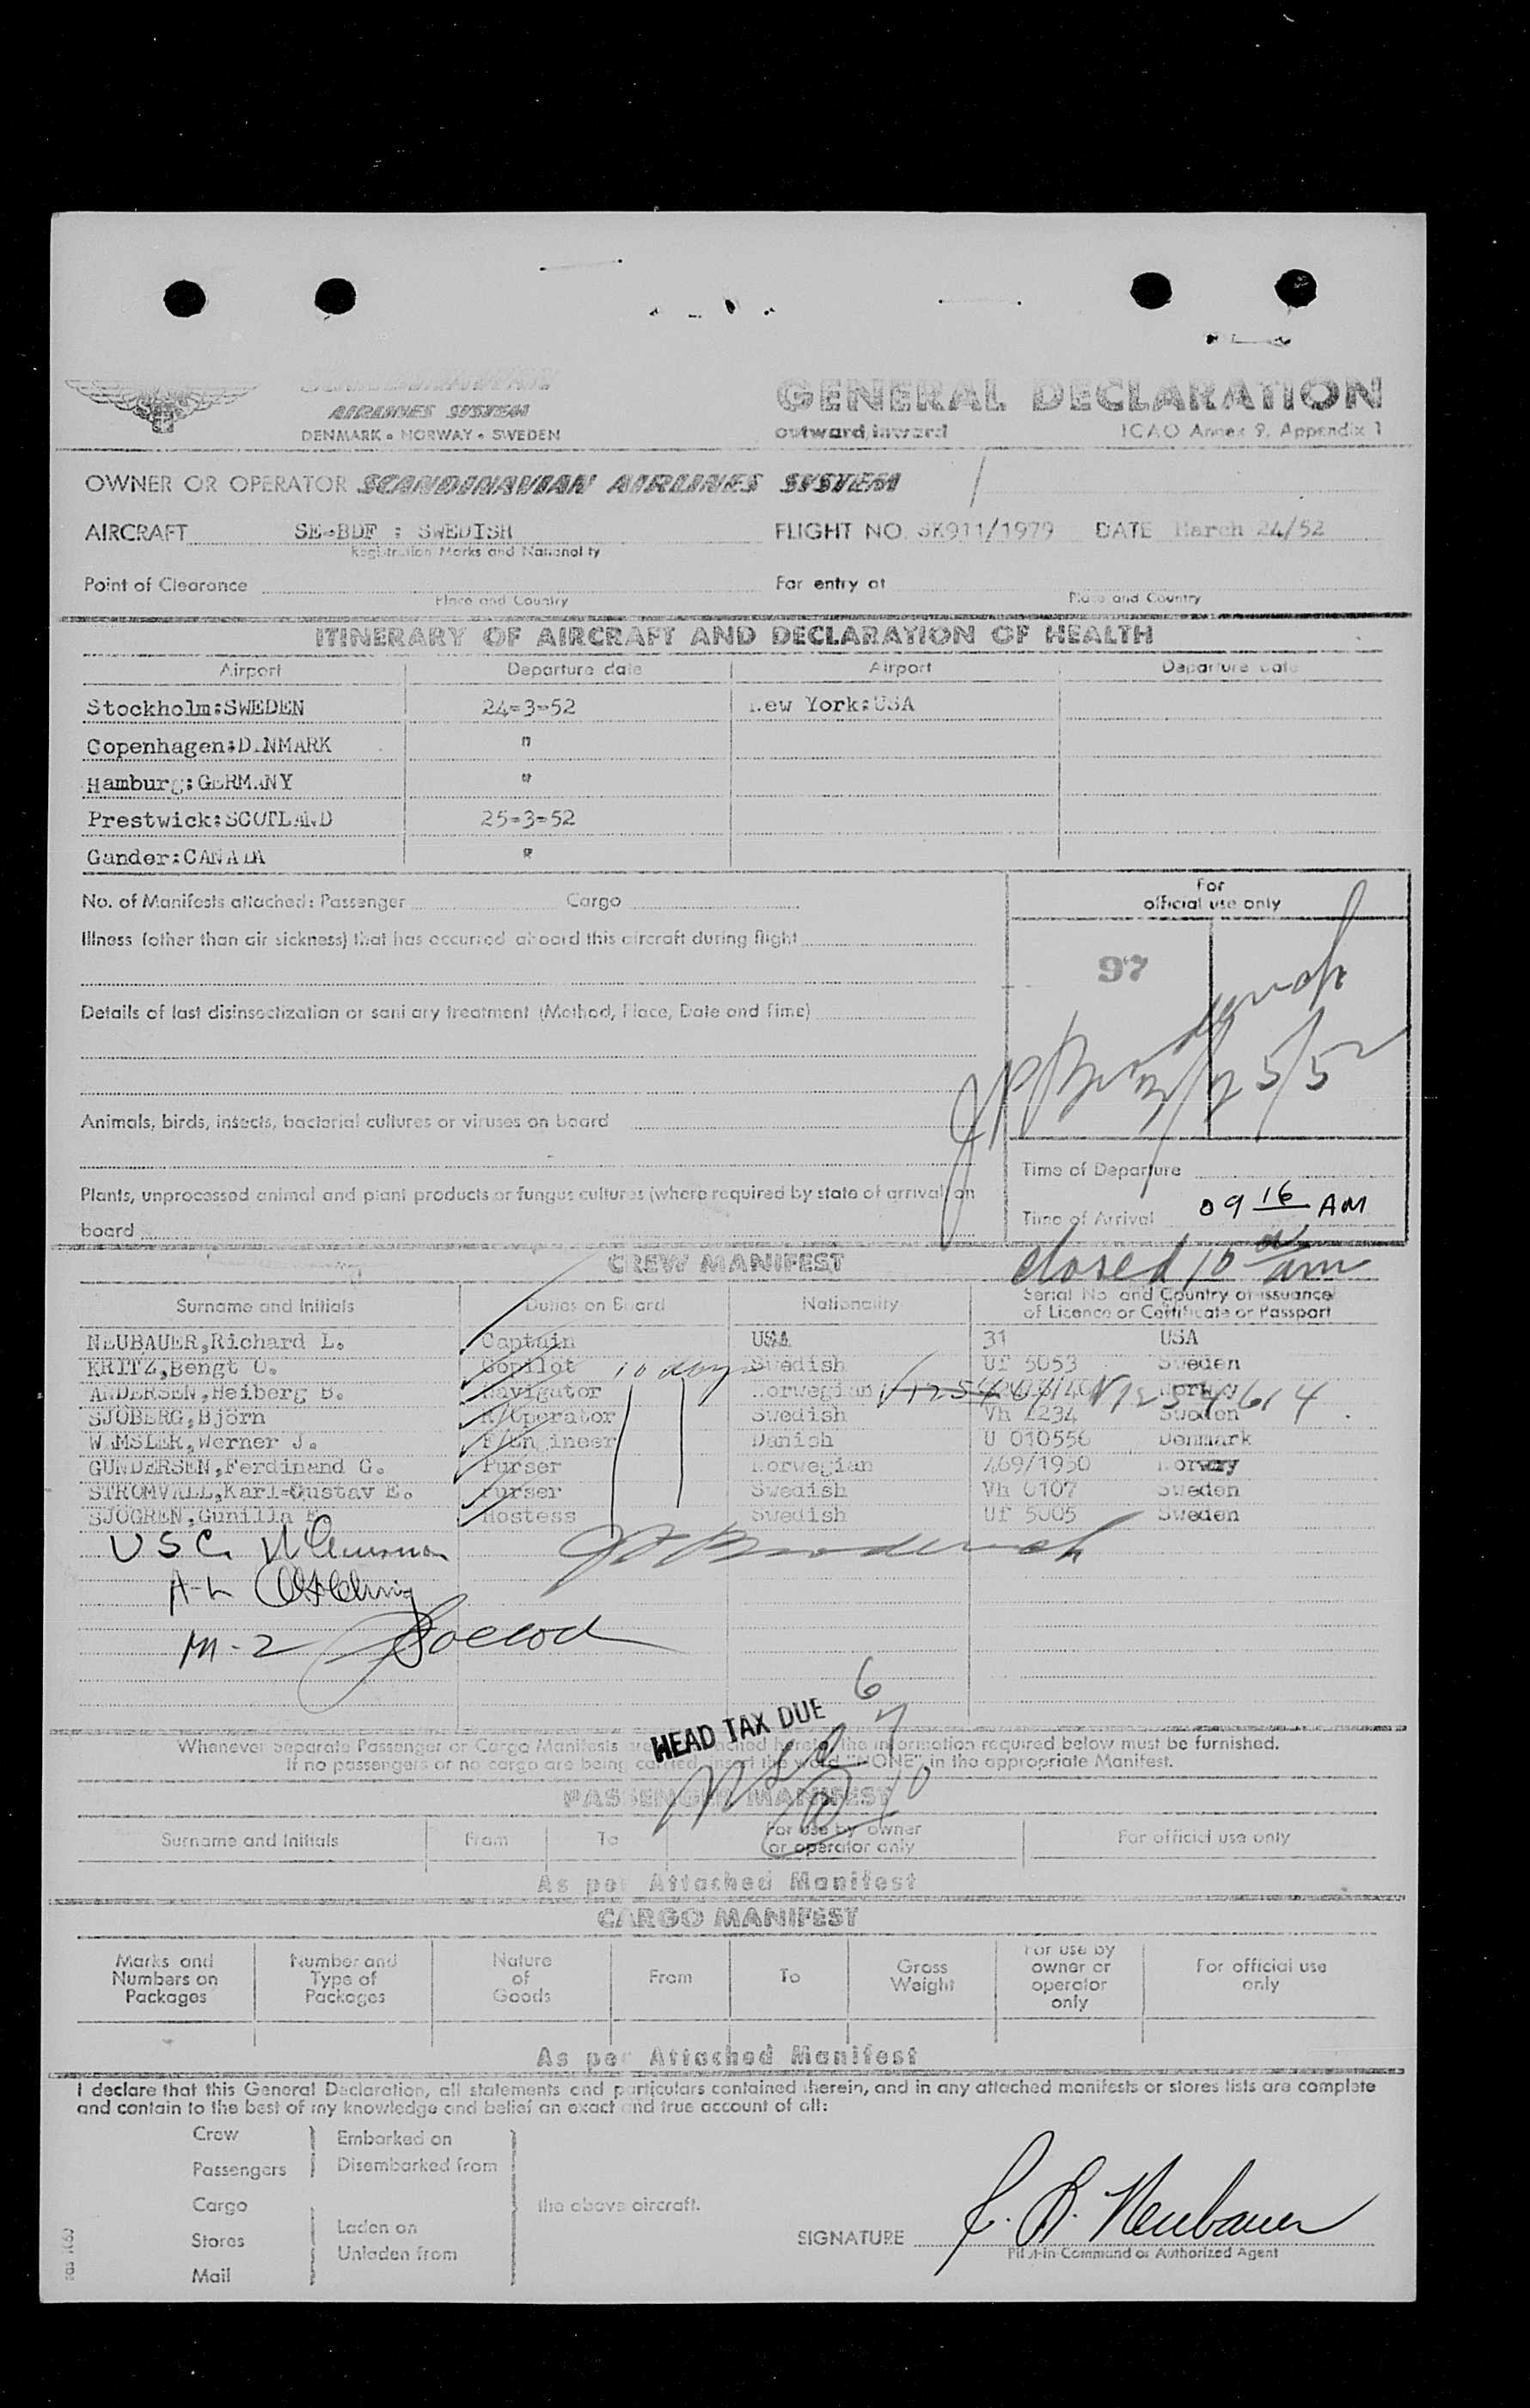 AIRLINES SYSTEM
DENMARK • NORWAY • SWEDEN
GENERAL DECLARATION
outward, inward
ICAO Annex 9, Appendix 1
OWNER OR OPERATOR SCANDINAVIAN AIRLINES SYSTEM
AIRCRAFT SE-BDF : SWEDISH FLIGHT NO. SK911/1979 DATE March 24/52
Registration Marks and Nationality
Point of Clearance For entry at
Place and Country Place and Country
ITINERARY OF AIRCRAFT AND DECLARATION OF HEALTH
Airport Departure date Airport Departure date
Stockholm:SWEDEN 24-3-52 New York:USA
Copenhagen:DENMARK "
Hamburg:GERMANY "
Prestwick:SCOTLAND 25-3-52
Gander:CANADA "
No. of Manifests attached: Passenger Cargo
For
official use only
Illness (other than air sickness) that has occurred aboard this aircraft during flight
97
Details of last disinsectization or sanitary treatment (Method, Place, Date and Time)
25/52
Animals, birds, insects, bacterial cultures or viruses on board
Time of Departure
Plants, unprocessed animal and plant products or fungus cultures (where required by state of arrival) on
board
Time of Arrival 09 16 AM
CREW MANIFEST
closed 10 am
Surname and Initials Duties on Board Nationality Serial No. and Country of issuance
of Licence or Certificate or Passport
NEUBAUER,Richard L. Captain USA 31 USA
KRITZ,Bengt O. Copilot 10 days Swedish Uf 5053 Sweden
ANDERSEN,Heiberg B. Navigator Norwegian Norway V1254614
SJÖBERG,Björn R/Operator Swedish Vh 4234 Sweden
WAMSLER,Werner J. F/Engineer Danish U 010556 Denmark
GUNDERSEN,Ferdinand G. Purser Norwegian 469/1950 Norway
STROMVALL,Karl-Gustav E. Purser Swedish Vh 0107 Sweden
SJOGREN,Gunilla Hostess Swedish Uf 5005 Sweden
USC
A-L
M-2
6
HEAD TAX DUE
Whenever separate Passenger or Cargo Manifests are attached hereto, the information required below must be furnished.
If no passengers or no cargo are being carried, insert the word "NONE" in the appropriate Manifest.
PASSENGER MANIFEST
Surname and Initials From To For use by owner
or operator only For official use only
As per Attached Manifest
CARGO MANIFEST
Marks and
Numbers on
Packages
Number and
Type of
Packages
Nature
of
Goods
From
To
Gross
Weight
For use by
owner or
operator
only
For official use
only
As per Attached Manifest
I declare that this General Declaration, all statements and particulars contained therein, and in any attached manifests or stores lists are complete
and contain to the best of my knowledge and belief an exact and true account of all:
Crew Embarked on
Passengers Disembarked from
Cargo the above aircraft.
Stores Laden on
Unladen from
Mail
SIGNATURE R. Neubauer
Pilot-in-Command or Authorized Agent